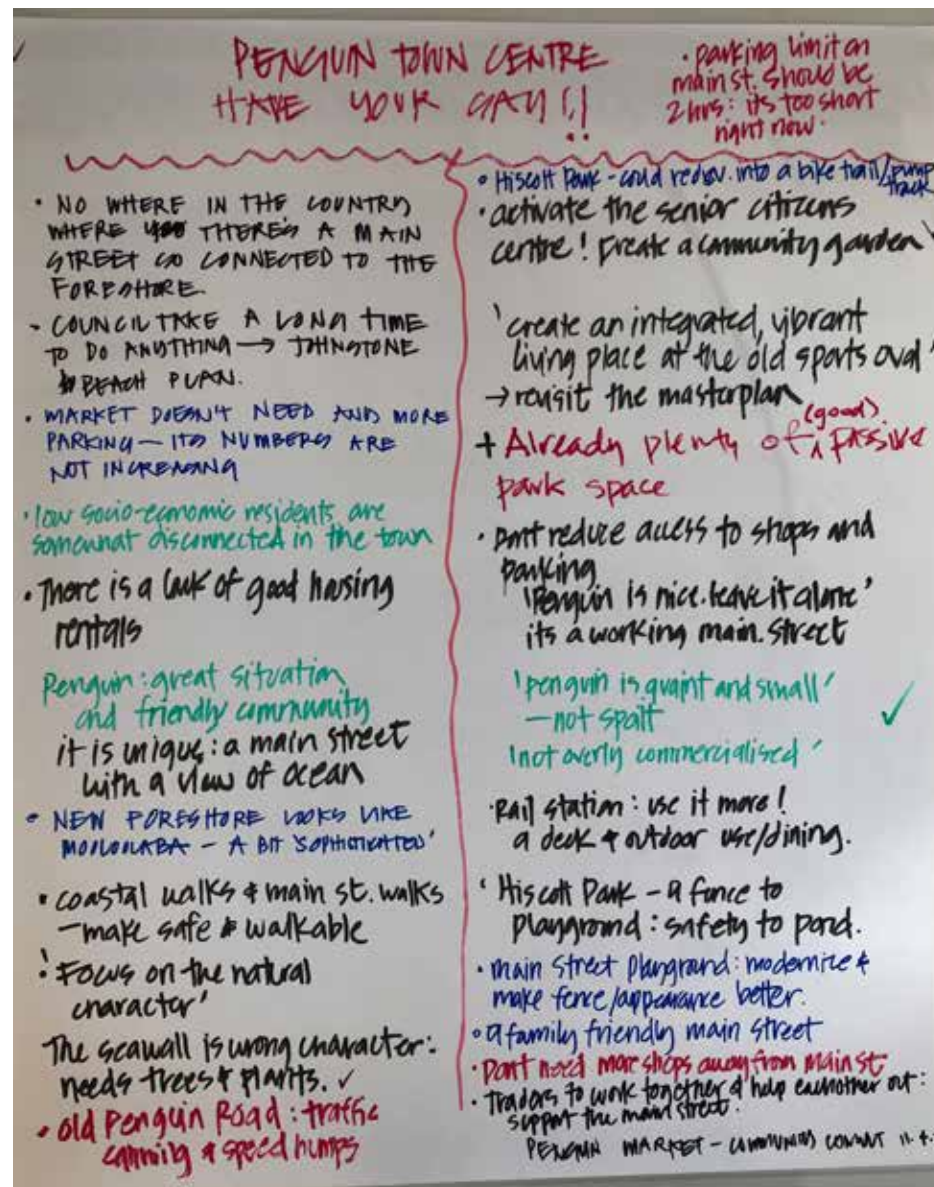 PENGUIN TOWN CENTRE
HAVE YOUR SAY!!
• parking limit on
main st. should be
2 hrs: its too short
right now.
• NO WHERE IN THE COUNTRY
WHERE THERE'S A MAIN
STREET SO CONNECTED TO THE
FORESHORE.
- COUNCIL TAKE A LONG TIME
TO DO ANYTHING → JOHNSTONE
BEACH PLAN.
• MARKET DOESN'T NEED AND MORE
PARKING - ITS NUMBERS ARE
NOT INCREASING
• low socio-economic residents are
somewhat disconnected in the town
• There is a lack of good housing
rentals
Penguin: great situation
and friendly community
it is unique: a main street
with a view of ocean
• NEW FORESHORE LOOKS LIKE
MOOLOOLABA - A BIT 'SOPHISTICATED'
• coastal walks & main st. walks
- make safe & walkable
• 'Focus on the natural
character'
The seawall is wrong character:
needs trees & plants. ✓
• old Penguin Road: traffic
calming & speed humps
• Hiscott Park - could redev. into a bike trail/pump
track
• activate the senior citizens
centre! Create a community garden
'create an integrated, vibrant
living place at the old sports oval'
→ revisit the masterplan
+ Already plenty of (good) passive
park space
• Dont reduce access to shops and
parking
'Penguin is nice. leave it alone'
its a working main. street
'penguin is quaint and small'
- not spoilt ✓
'not overly commercialised'
• Rail station: use it more!
a deck & outdoor use/dining.
' Hiscott Park - a fence to
playground: safety to pond.
• main street playground: modernize &
make fence/appearance better.
• a family friendly main street
• Dont need more shops away from main st
• Traders to work together & help eachother out:
support the main street.
PENGUIN MARKET - COMMUNITY